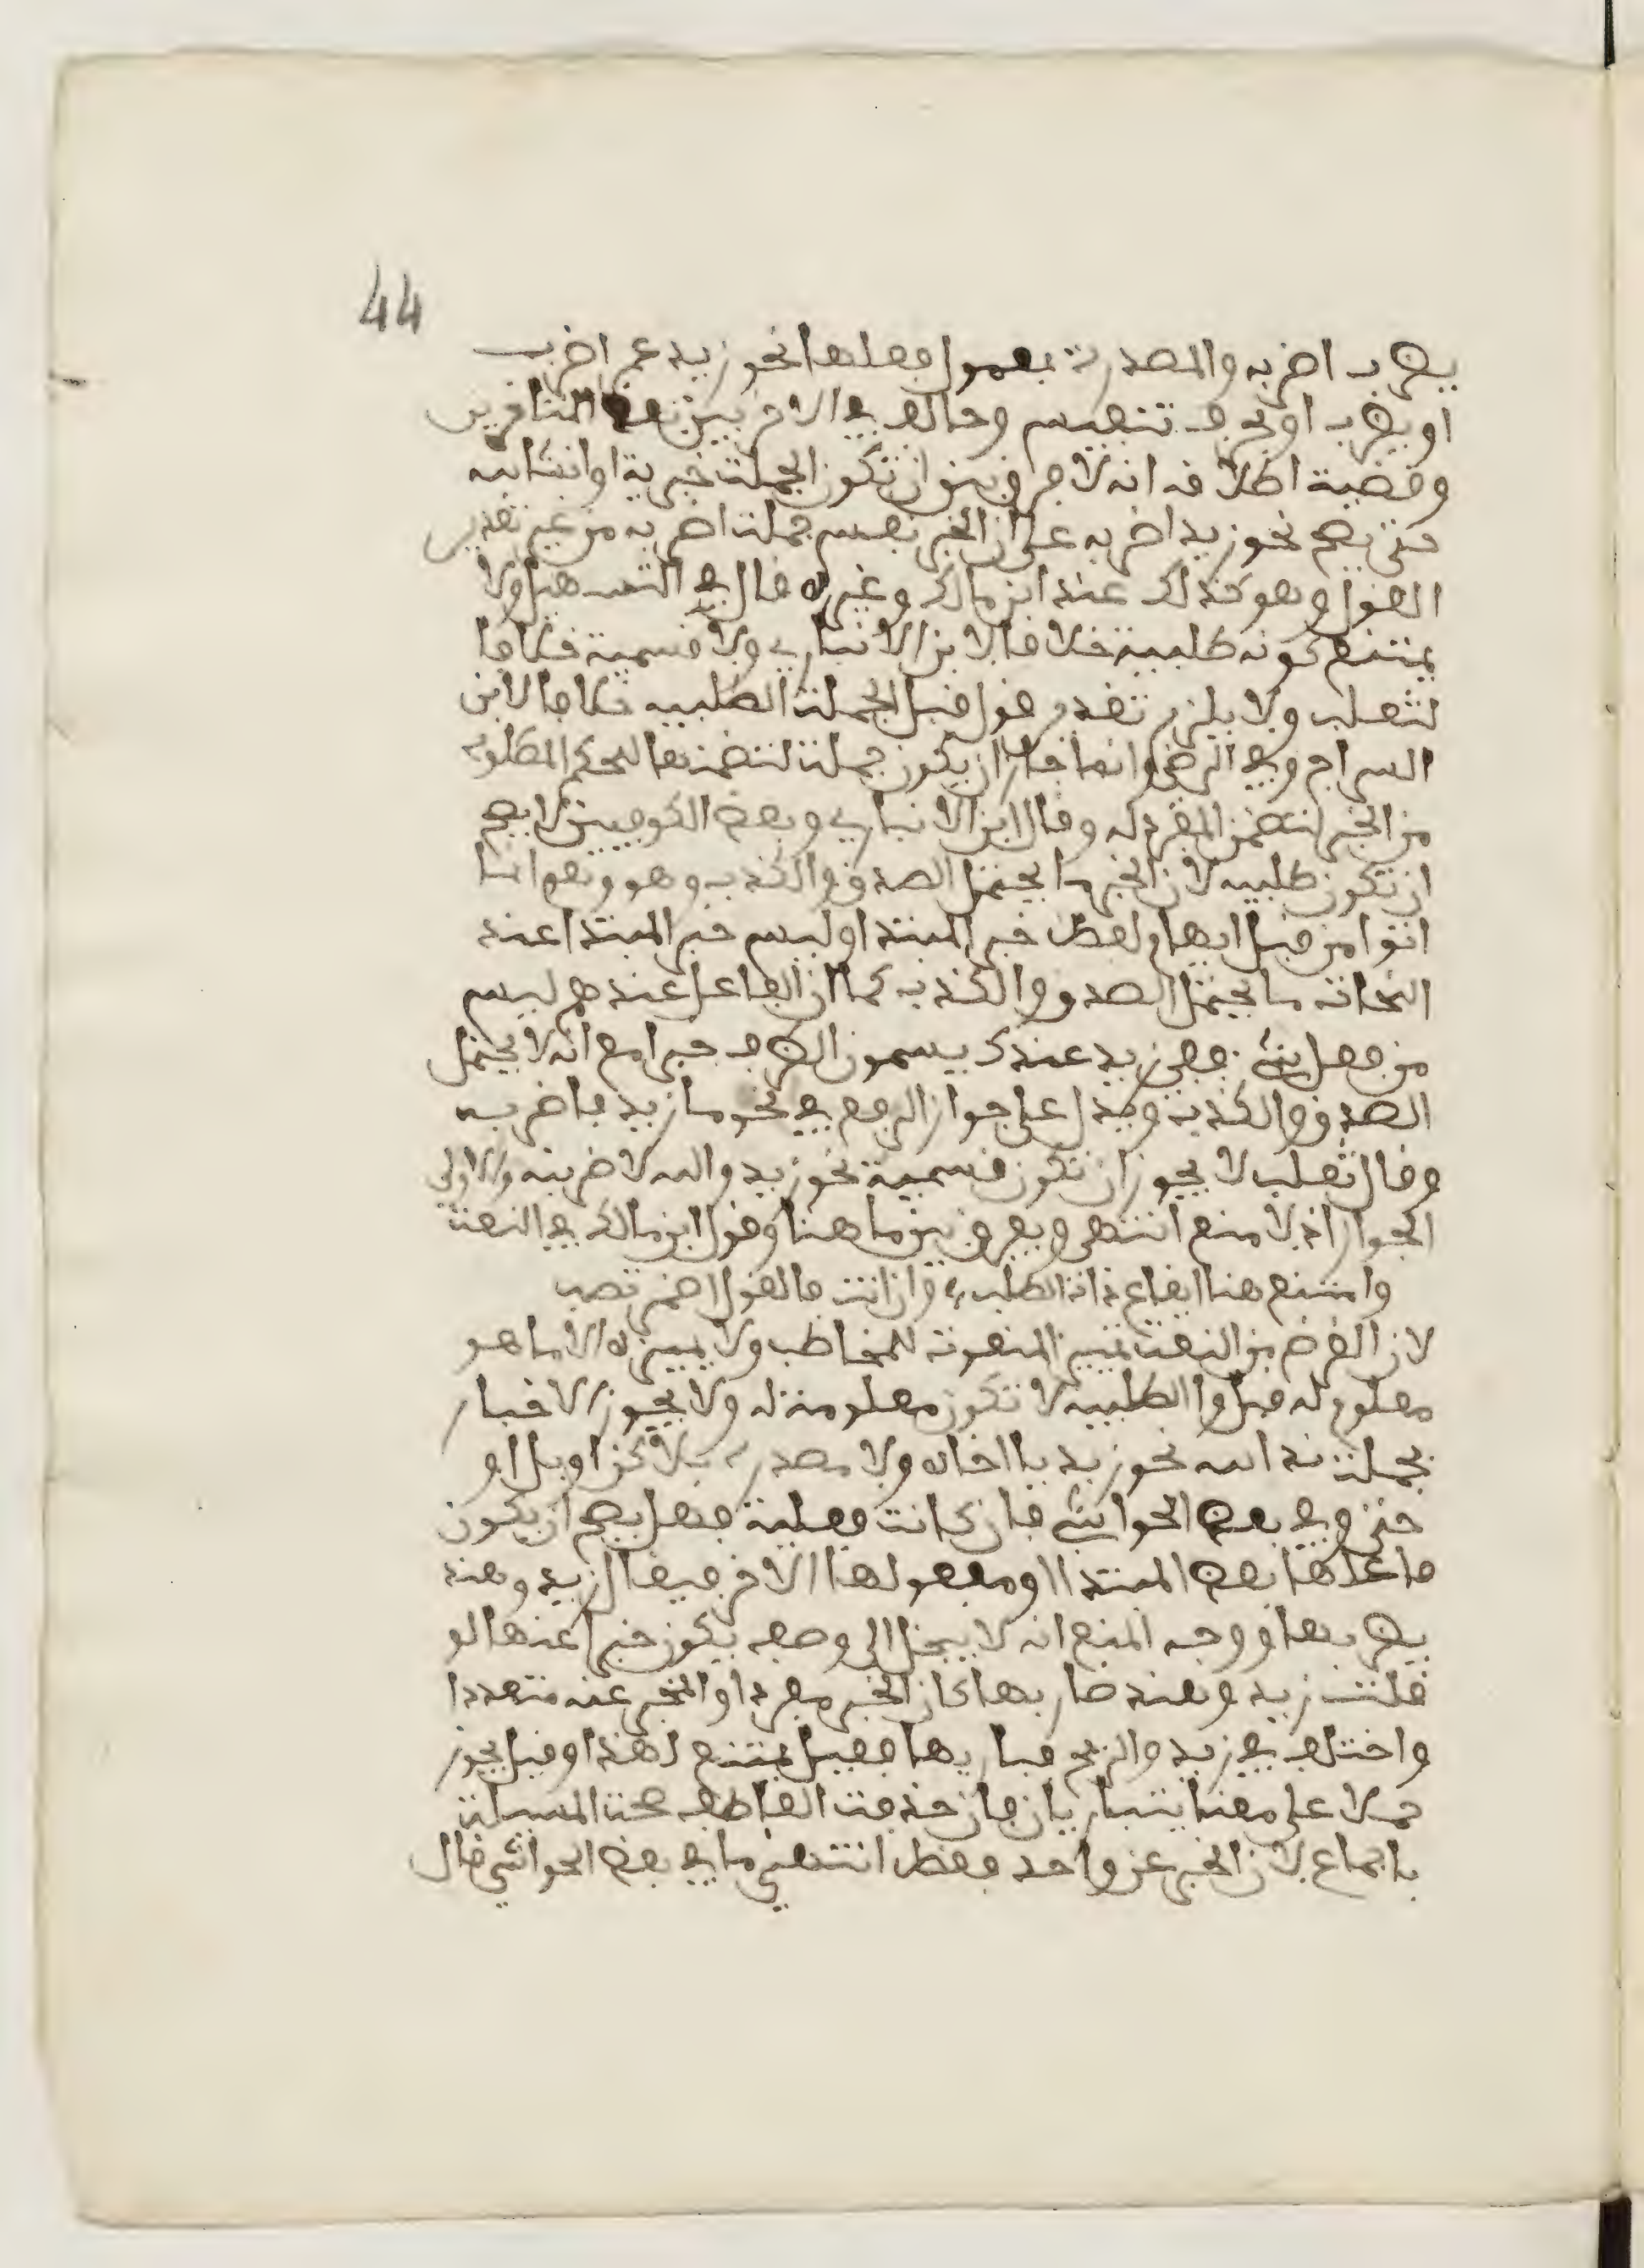 44
يضرب اضربه والمصدرة بمعمول فعلها نحو زيد عمرا ضرب
او يضرب او بحرف تنفيس وخالف في الاخرين بعض المتاخرين
وقضية اطلاقه انه لا فرق بين ان تكون الجملة خبرية او انشائية
حتى يصح نحو زيد اضربه على ان الخبر نفس جملة اضربه من غير تقدير
القول وهو كذلك عند ابن مالك وغيره قال في التسهيل ولا
يمتنع كونه طلبية خلافا لابن الانباري ولا قسمية خلافا
لثعلب ولا يلزم تقدم قول قبل الجملة الطلبية خلافا لابن
السراج وفي الرضي وانما جاز ان يكون جملة لتضمنها للحكم المطلوب
من الخبر لتضمن المفرد له وقال ابن الانباري وبعض الكوفيين لا يصح
ان تكون طلبية لان الخبر ما يحتمل الصدق والكذب وهو وهم انما
اتوا من قبل ايهام لفظ خبر المبتدا وليس خبر المبتدا عند
النحاة ما يحتمل الصدق والكذب كما ان الفاعل عندهم ليس
من فعل شئ ففي زيد عندك يسمون الظرف خبرا مع انه لا يحتمل
الصدق والكذب ويدل على جواز الرفع في نحو ما زيد فاضربه
وقال ثعلب لا يجوز ان تكون قسمية نحو زيد والله لاضربنه والاولى
الجواز اذ لا منع انتهى ويفرق بين ما هنا وقول ابن مالك في النعت
وامنع هنا ايقاع ذات الطلب، وان اتت فالقول اضمر تصب
لان الغرض من النعت تمييز المنعوت للمخاطب ولا يميزه الا ما هو
معلوم له قبل والطلبية لا تكون معلومة له ولا يجوز الاخبار
بجملة ندائية نحو زيد يا اخاه ولا مصدرة بلاكن او بل او
حتى وفي بعض الحواشي فان كانت فعلية فهل يصح ان يكون
فاعلها بعض المبتدا ومفعولها الاخر فيقال زيد وهند
يضربها ووجه المنع انه لا ينحل الى وصف يكون خبرا عنها لو
قلت زيد وهند ضاربها كان الخبر مفردا والمخبر عنه متعددا
واختلف في زيد والريح يباريها فقيل يمتنع لهذا وقيل يجوز
حملا على معنا يتباريان فان حذفت العاطف صحت المسئلة
باجماع لان الخبر عن واحد فقط انتهى ما في بعض الحواشي قال